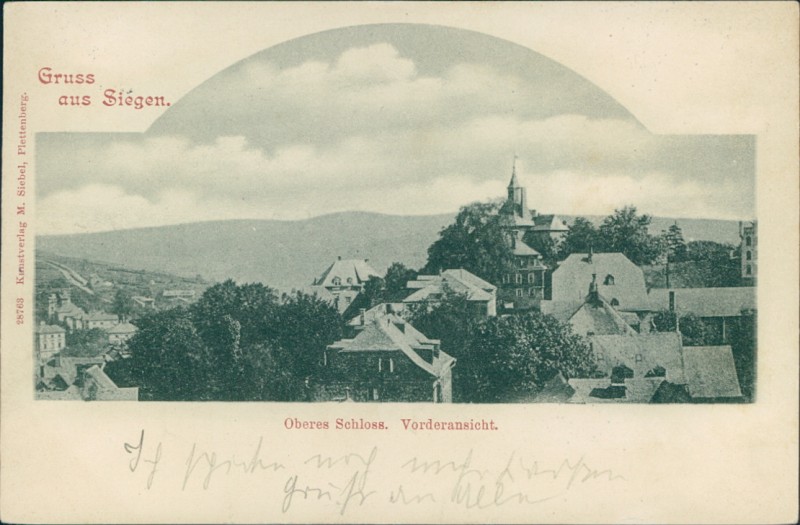 Gruss
aus Siegen.
28763 Kunstverlag M. Siebel, Plettenberg.
Oberes Schloss. Vorderansicht.
Ich
Gruß an Alle